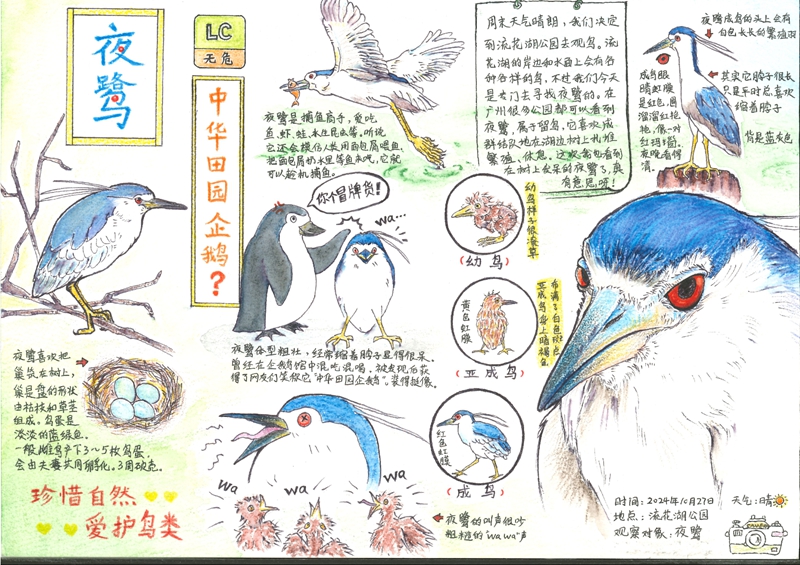 夜鹭
LC
无危
中华田园企鹅?
夜鹭是捕鱼高手，爱吃
鱼、虾、蛙、水生昆虫等。听说
它还会模仿人类用面包屑喂鱼，
把面包屑扔水里等鱼来吃，它就
可以趁机捕鱼。
周末天气晴朗，我们决定
到流花湖公园去观鸟。流
花湖的岸边和水面上会有各
种各样的鸟，不过我们今天
是专门去寻找夜鹭的。在
广州很多公园都可以看到
夜鹭，属于留鸟，它喜欢成
群结队地在湖边树上扎堆
繁殖、休息。这次我也看到
在树上发呆的夜鹭了，真
有意思呀！
夜鹭成鸟的头上会有
白色长长的繁殖羽
成鸟眼
睛虹膜
是红色，圆
溜溜红艳
艳，像一对
红玛瑙。
夜晚看得
清。
其实它脖子很长
只是平时总喜欢
缩着脖子
背是蓝色
你冒牌货！
wa...
夜鹭体型粗壮，经常缩着脖子显得很呆，
曾经在企鹅馆中混吃混喝，被发现后获
得了网友们笑称它“中华田园企鹅”。装得挺像。
幼鸟样子很潦草
(幼鸟)
黄色虹膜
布满了白色斑点
亚成鸟身上暗褐色
(亚成鸟)
红色虹膜
(成鸟)
夜鹭喜欢把
巢筑在树上，
巢是盘的形状
由枯枝和草茎
组成。鸟蛋是
淡淡的蓝绿色。
一般雌鸟产下3~5枚鸟蛋，
会由夫妻共同孵化。3周破壳。
珍惜自然
爱护鸟类
wa
wa
wa
夜鹭的叫声很吵
粗糙的“wa wa”声
时间：2024年10月27日
天气：晴
地点：流花湖公园
观察对象：夜鹭